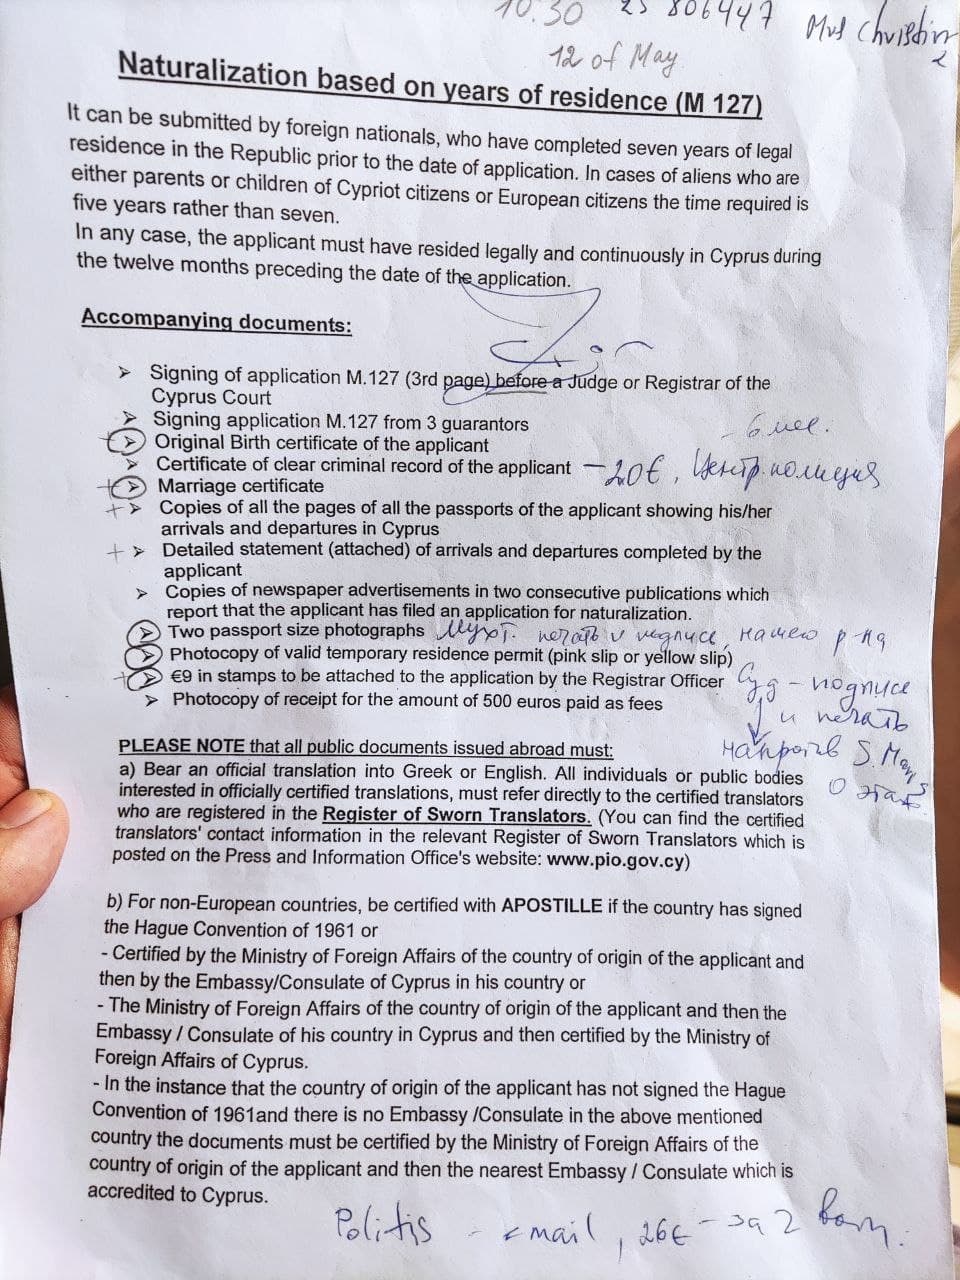 10.30 25 806447 Mrs Christin
2
12 of May
Naturalization based on years of residence (M 127)
It can be submitted by foreign nationals, who have completed seven years of legal
residence in the Republic prior to the date of application. In cases of aliens who are
either parents or children of Cypriot citizens or European citizens the time required is
five years rather than seven.
In any case, the applicant must have resided legally and continuously in Cyprus during
the twelve months preceding the date of the application.
Accompanying documents:
➤ Signing of application M.127 (3rd page) before a Judge or Registrar of the
Cyprus Court
➤ Signing application M.127 from 3 guarantors
- 6 мес.
➤ Original Birth certificate of the applicant
➤ Certificate of clear criminal record of the applicant – 20€, Центр. полиция
➤ Marriage certificate
+ ➤ Copies of all the pages of all the passports of the applicant showing his/her
arrivals and departures in Cyprus
+ ➤ Detailed statement (attached) of arrivals and departures completed by the
applicant
➤ Copies of newspaper advertisements in two consecutive publications which
report that the applicant has filed an application for naturalization.
➤ Two passport size photographs Мухт. печать и подпись, нашего р-на
➤ Photocopy of valid temporary residence permit (pink slip or yellow slip)
➤ €9 in stamps to be attached to the application by the Registrar Officer Суд – подпись
➤ Photocopy of receipt for the amount of 500 euros paid as fees и печать
напротив
0 этаж
PLEASE NOTE that all public documents issued abroad must:
a) Bear an official translation into Greek or English. All individuals or public bodies
interested in officially certified translations, must refer directly to the certified translators
who are registered in the Register of Sworn Translators. (You can find the certified
translators' contact information in the relevant Register of Sworn Translators which is
posted on the Press and Information Office's website: www.pio.gov.cy)
b) For non-European countries, be certified with APOSTILLE if the country has signed
the Hague Convention of 1961 or
- Certified by the Ministry of Foreign Affairs of the country of origin of the applicant and
then by the Embassy/Consulate of Cyprus in his country or
- The Ministry of Foreign Affairs of the country of origin of the applicant and then the
Embassy / Consulate of his country in Cyprus and then certified by the Ministry of
Foreign Affairs of Cyprus.
- In the instance that the country of origin of the applicant has not signed the Hague
Convention of 1961and there is no Embassy /Consulate in the above mentioned
country the documents must be certified by the Ministry of Foreign Affairs of the
country of origin of the applicant and then the nearest Embassy / Consulate which is
accredited to Cyprus.
Politis - email, 26€ – за 2